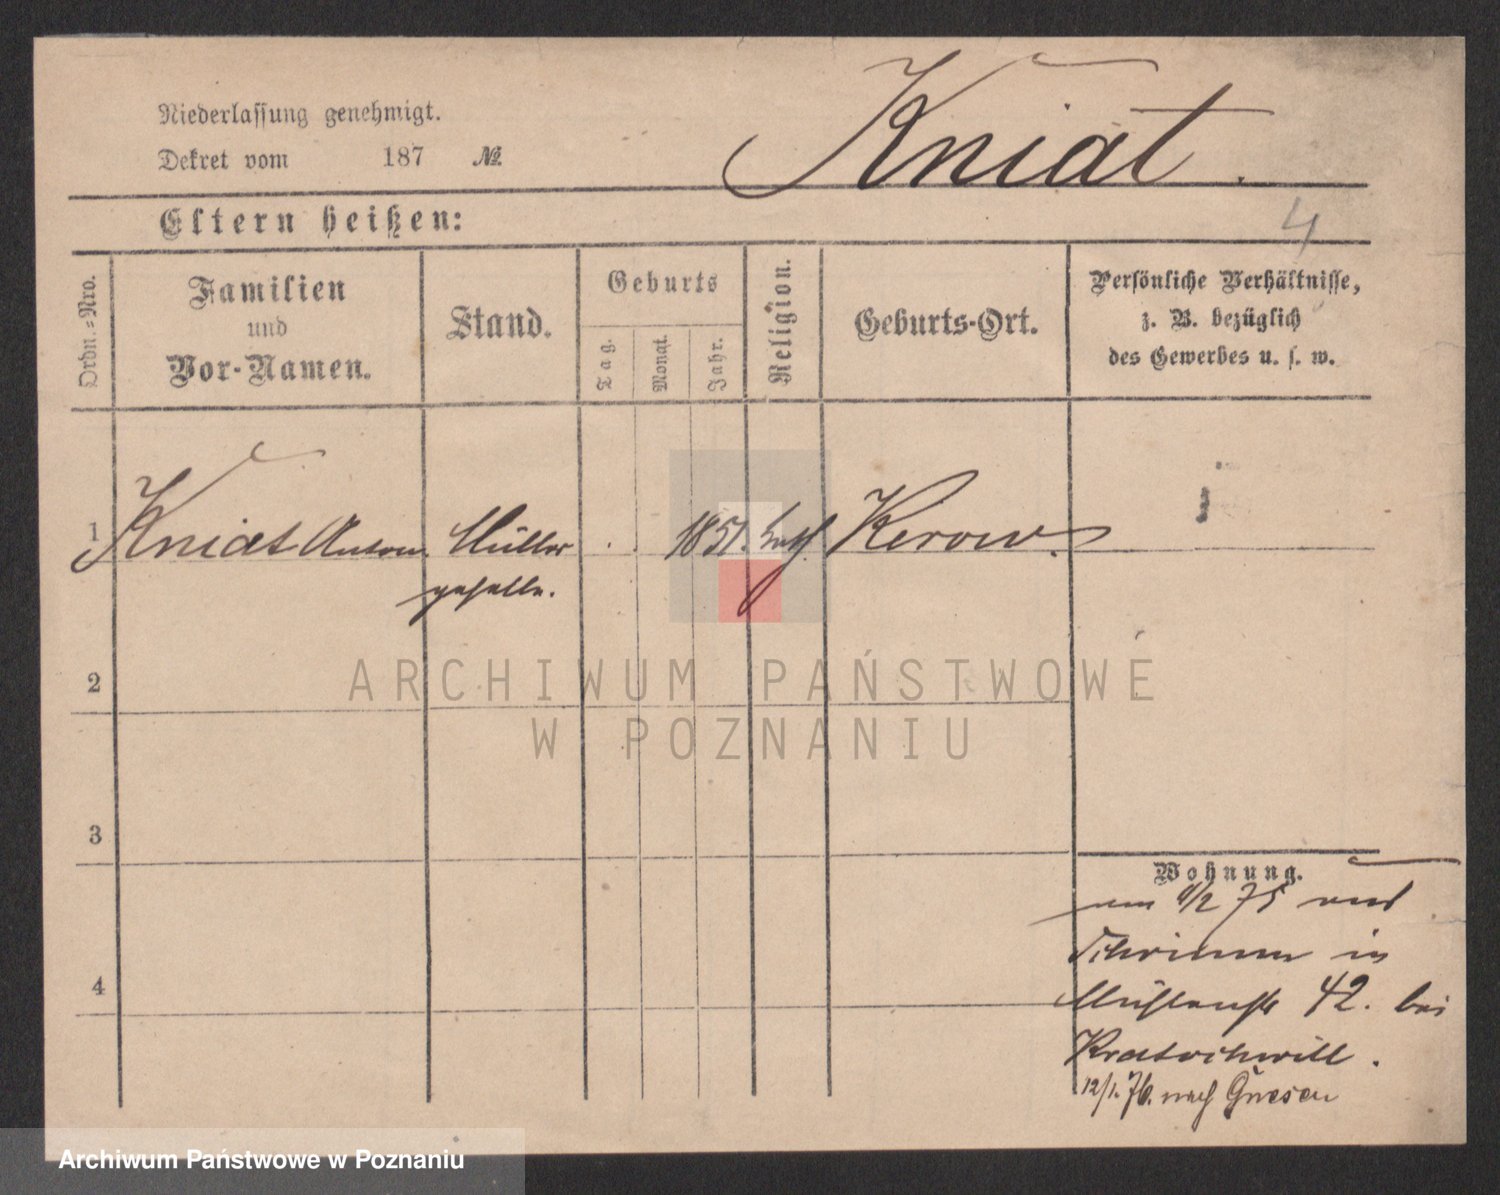 Kniat.
Niederlassung genehmigt.
Dekret vom 187 №
Eltern heißen:
4
Ordn.=Nro.
Familien
und
Vor-Namen.
Stand.
Geburts
Tag.
Monat.
Jahr.
Religion.
Geburts-Ort.
Persönliche Verhältnisse,
z. B. bezüglich
des Gewerbes u. s. w.
1 Kniat Anton Müller 1851. kath. Kerow.
geselle.
ARCHIWUM PAŃSTWOWE
2
W POZNANIU
3
Wohnung.
75
Schrimm in
4
Mühlenstr 42. bei
Kratochwill.
12/1. 76. nach Gnesen
Archiwum Państwowe w Poznaniu